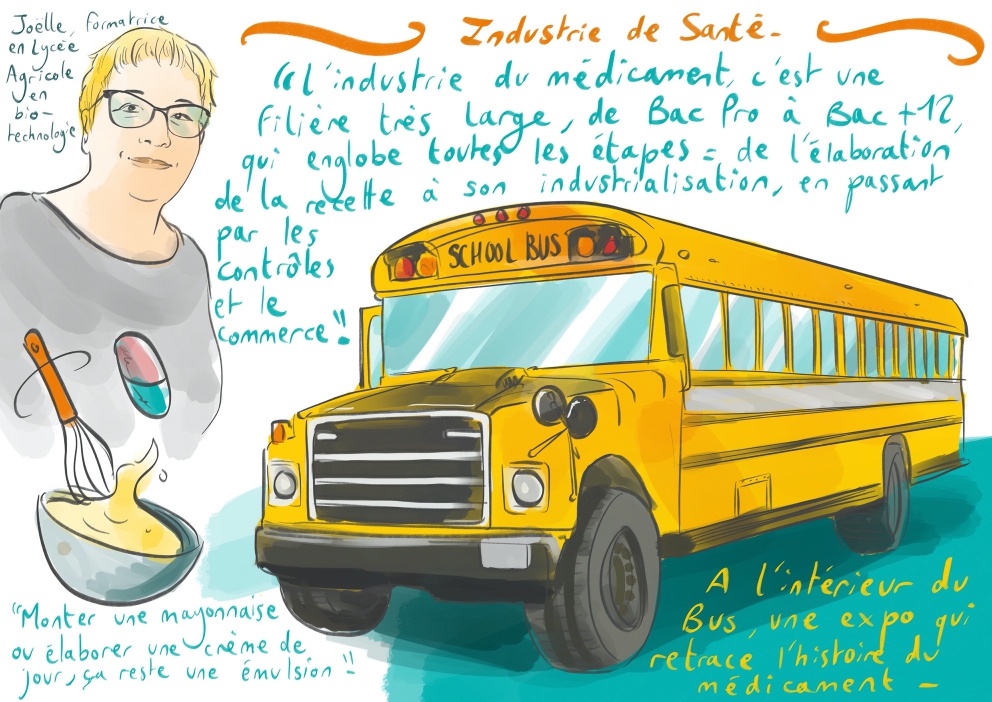 Joëlle, formatrice
en Lycée
Agricole
en
bio-
technologie
Industrie de Santé-
“l'industrie du médicament, c'est une
filière très large, de Bac Pro à Bac +12,
qui englobe toutes les étapes : de l'élaboration
de la recette à son industrialisation, en passant
par les
contrôles
et le
commerce"!
SCHOOL BUS
“Monter une mayonnaise
ou élaborer une crème de
jour, ça reste une émulsion"!
A l'intérieur du
Bus, une expo qui
retrace l'histoire du
médicament -